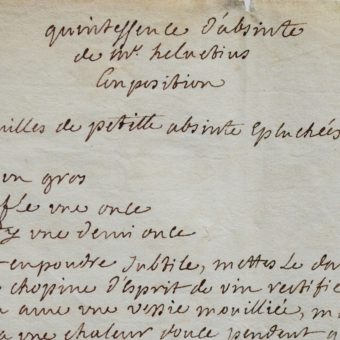 quintessence d'absinte
de mr. helvetius
Composition
uilles de petitte absinte Epluchées
un gros
fle une once
une demi once
en poudre subtile, mettes Le da
chopine d'Esprit de vin rectifie
avec une vessie mouilliée, m
une chaleur douce pendent q